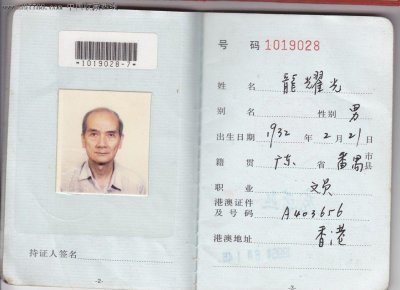 *1019028-7*
持证人签名
-2-
号 码 1019028
姓 名 龍耀光
别 名 性别 男
出生日期 1932 年 2 月 21 日
籍 贯 广东 省 番禺 市县
职 业 文员
港澳证件
及号码 A403656
港澳地址 香港
-3-